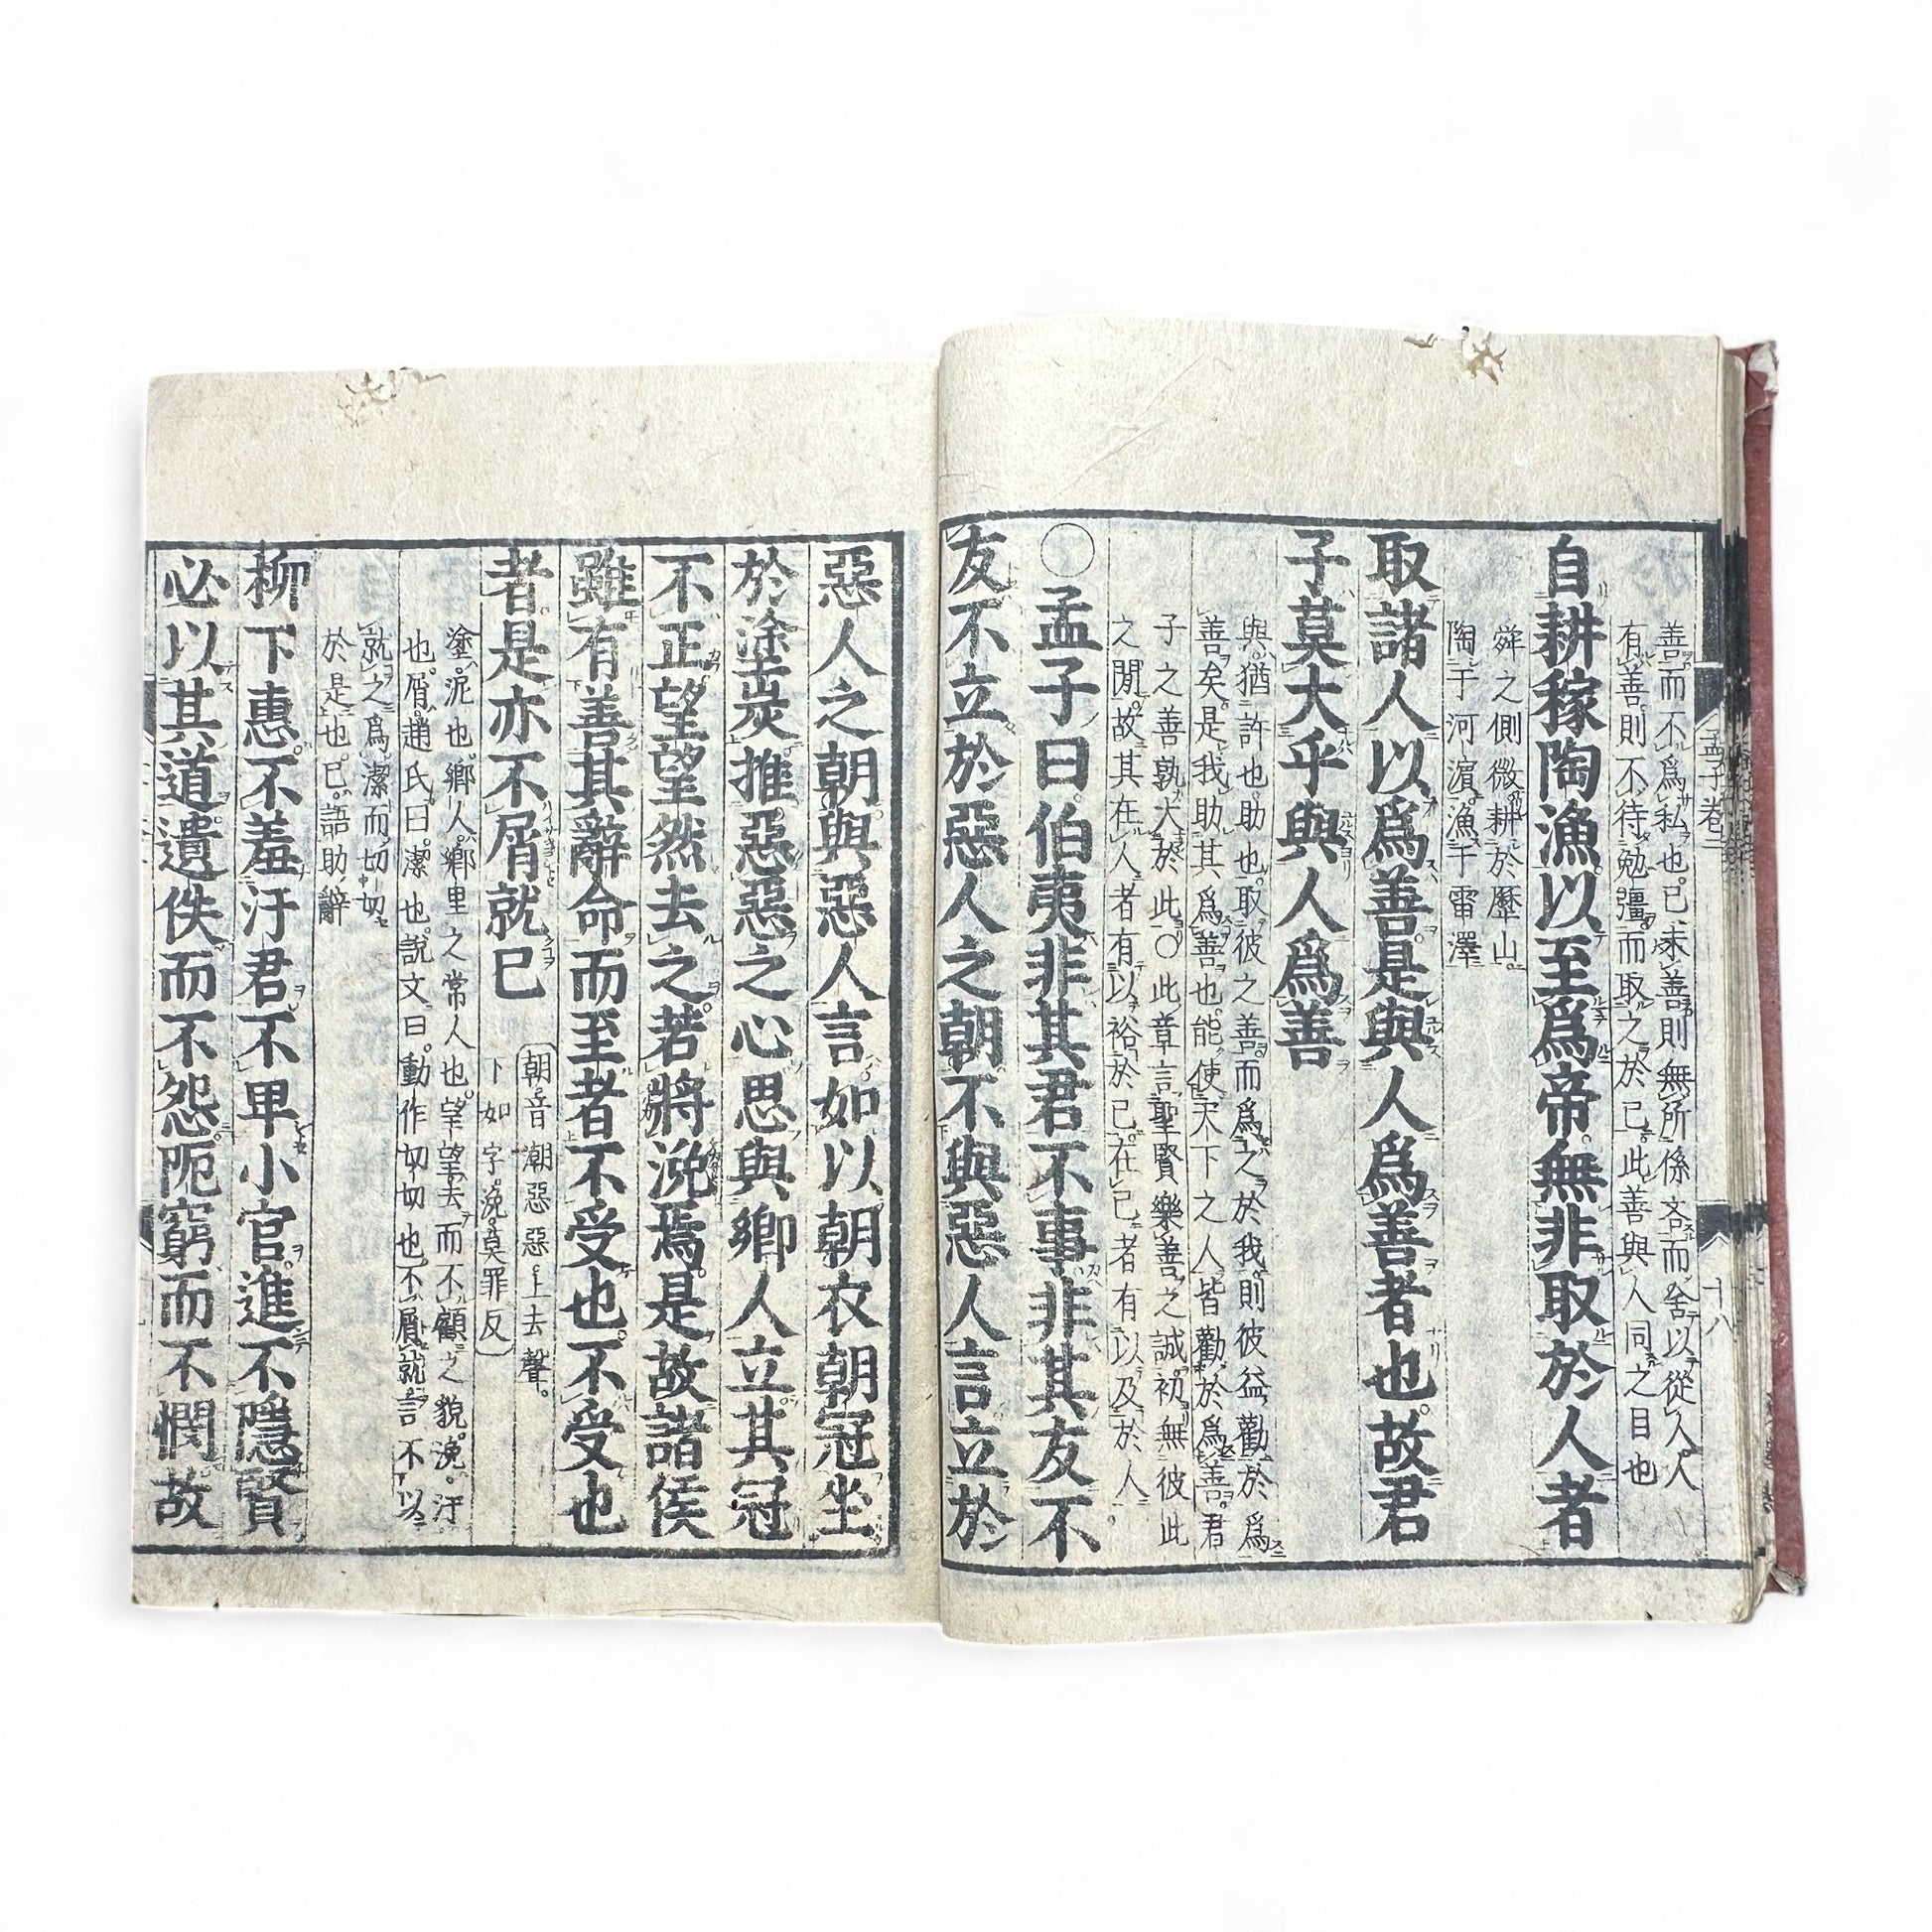 孟子卷二
十八
善而不爲私也已未善則無所係吝而舍以從人人
有善則不待勉彊而取之於己此善與人同之目也
自耕稼陶漁以至爲帝無非取於人者
舜之側微耕於歷山
陶于河濵漁于雷澤
取諸人以爲善是與人爲善者也故君
子莫大乎與人爲善
與猶許也助也取彼之善而爲之於我則彼益勸於爲
善矣是我助其爲善也能使天下之人皆勸於爲善君
子之善孰大於此○此章言聖賢樂善之誠初無彼此
之閒故其在人者有以裕於己在己者有以及於人
○孟子曰伯夷非其君不事非其友不
友不立於惡人之朝不與惡人言立於
惡人之朝與惡人言如以朝衣朝冠坐
於塗炭推惡惡之心思與鄉人立其冠
不正望望然去之若將浼焉是故諸侯
雖有善其辭命而至者不受也不受也
者是亦不屑就已
朝音潮惡惡上去聲
下如字浼莫罪反
塗泥也鄉人鄉里之常人也望望去而不顧之貌浼汙
也屑趙氏曰潔也說文曰動作切切也不屑就言不以
就之爲潔而切切
於是也已語助辭
柳下惠不羞汙君不卑小官進不隱賢
必以其道遺佚而不怨阨窮而不憫故